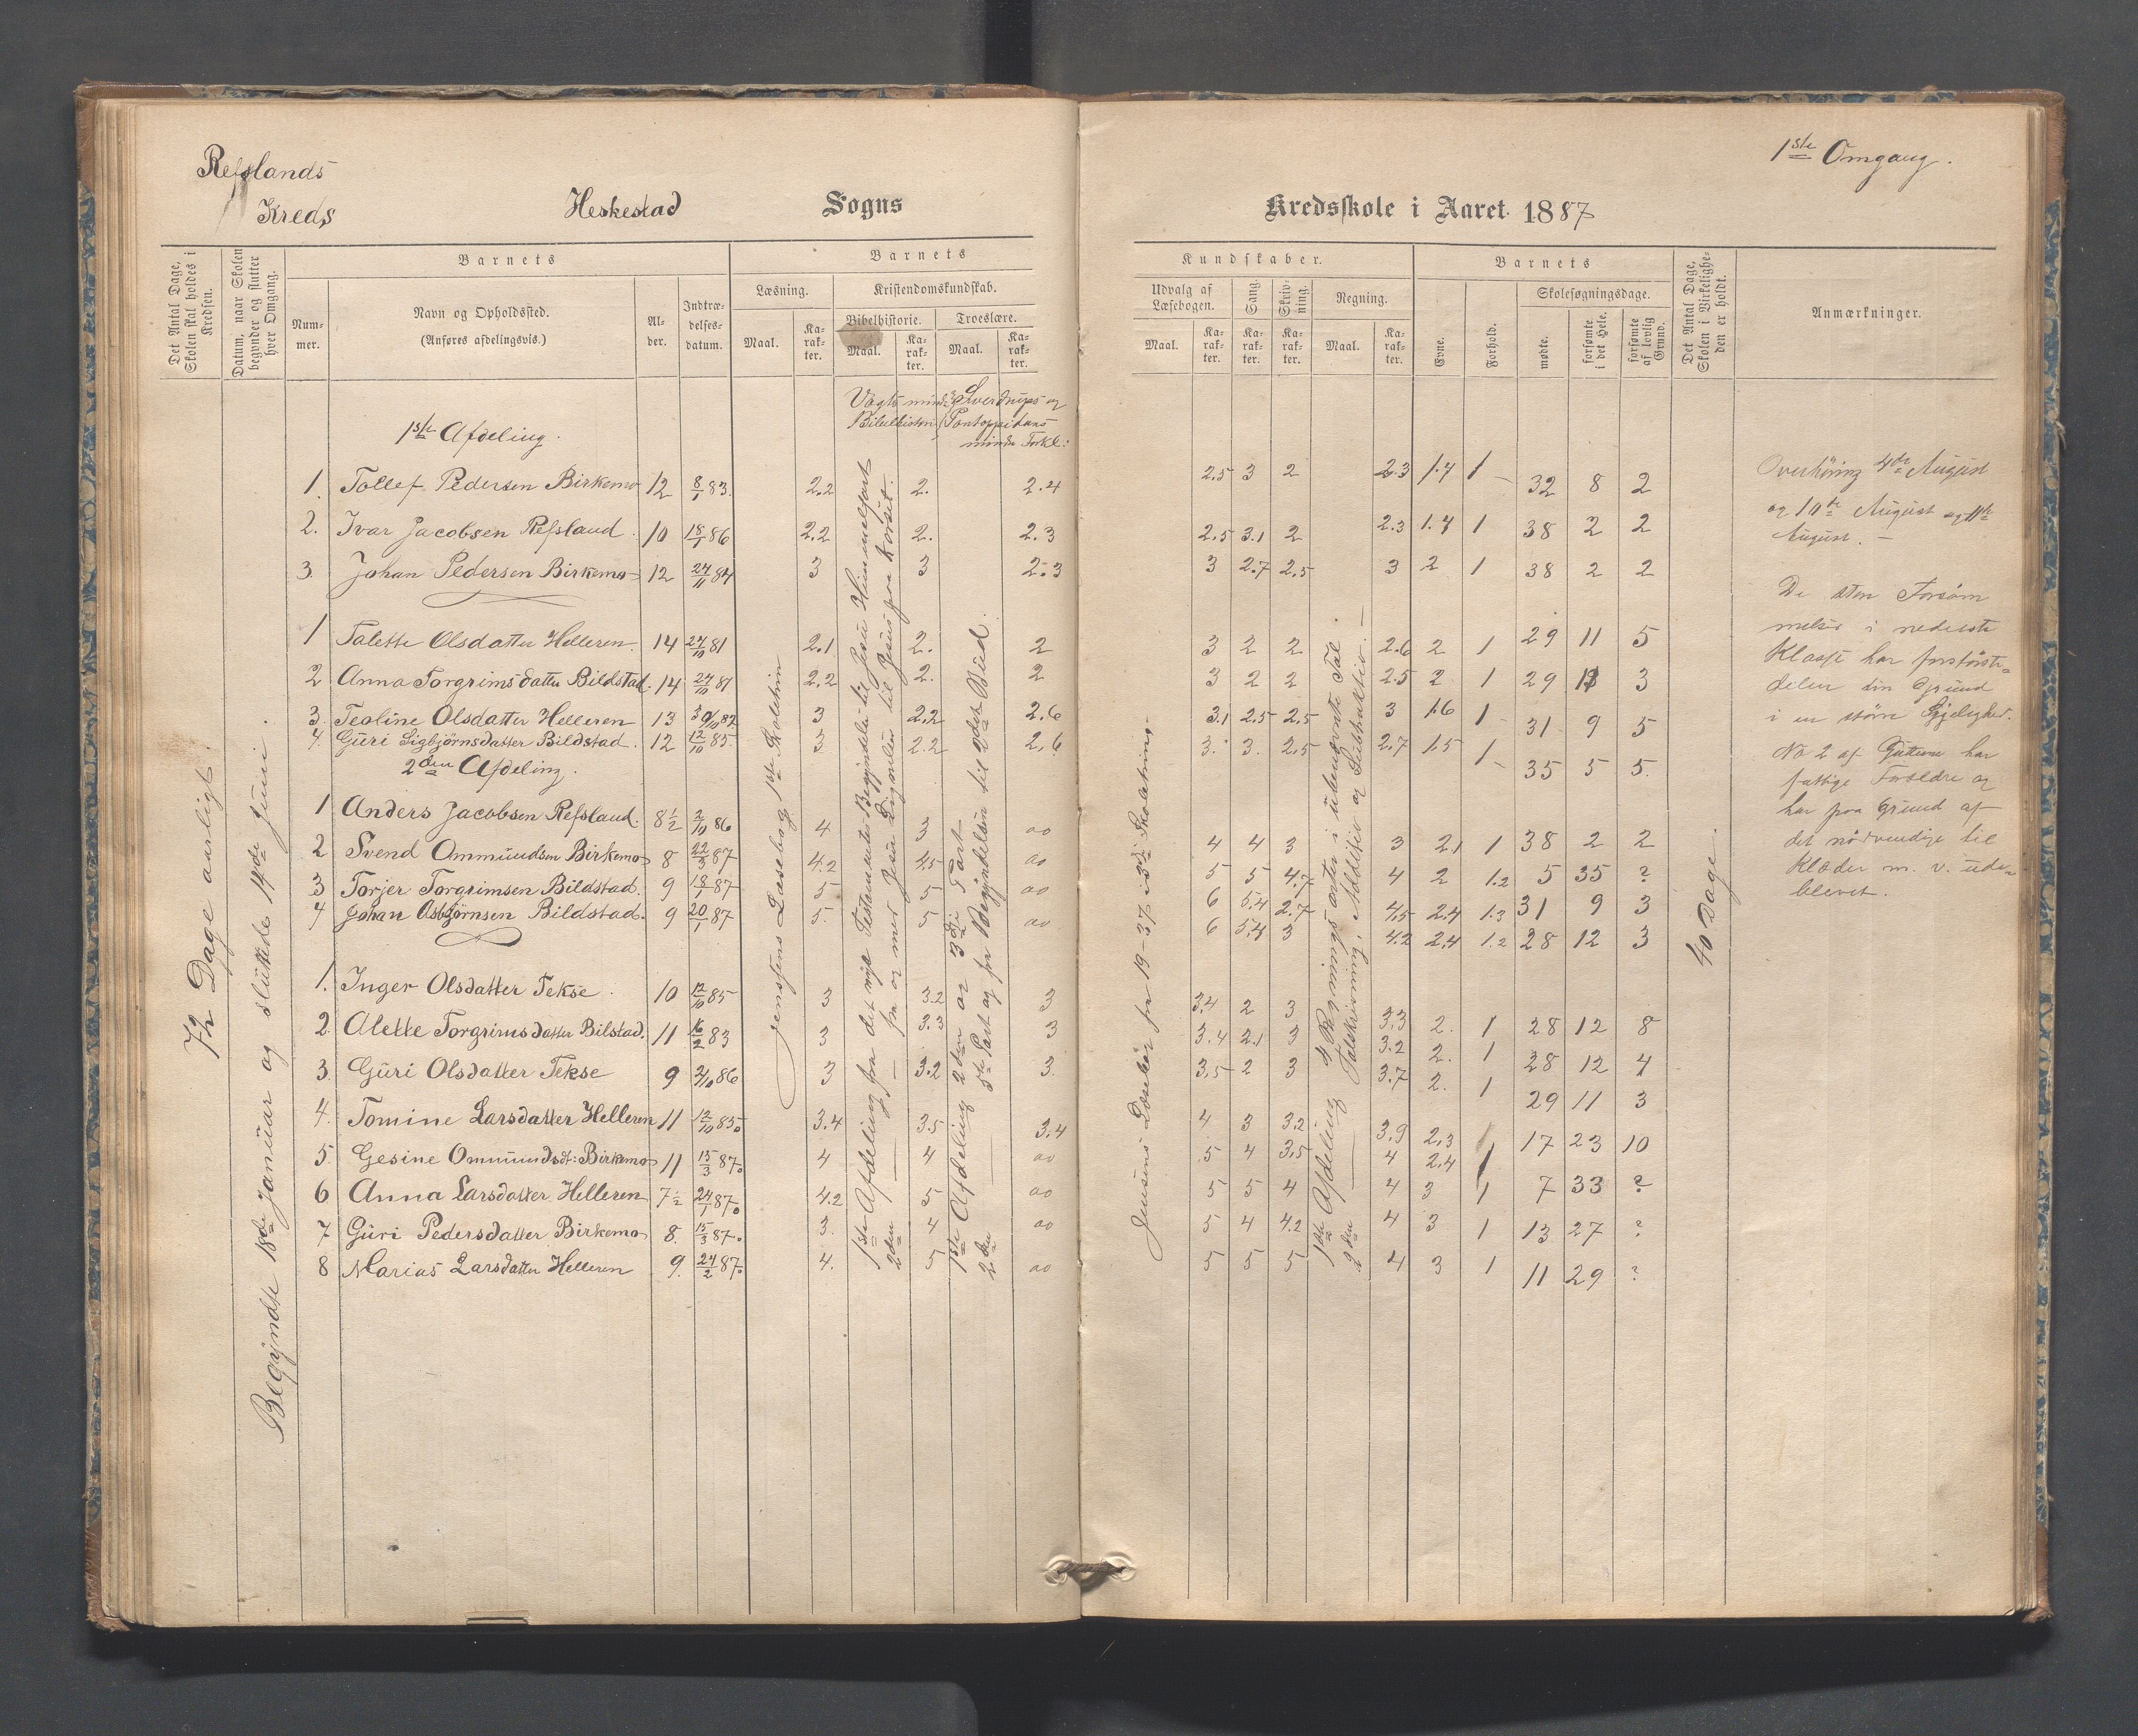 Refslands
Kreds
Heskestad Sogns
Kredsskole i Aaret 1887
1ste Omgang.
Det Antal Dage, Skolen skal holdes i Kredsen.
Datum, naar Skolen begynder og slutter hver Omgang.
Barnets
Nummer.
Navn og Opholdssted.
(Anføres afdelingsvis.)
Alder.
Indtrædelsesdatum.
Barnets
Læsning.
Maal.
Karakter.
Kristendomskundskab.
Bibelhistorie.
Maal.
Karakter.
Troeslære.
Maal.
Karakter.
Kundskaber.
Udvalg af Læsebogen.
Maal.
Karakter.
Sang.
Karakter.
Skrivning.
Karakter.
Regning.
Maal.
Karakter.
Barnets
Evne.
Forhold.
Skolesøgningsdage.
mødte.
forsømte i det Hele.
forsømte af lovlig Grund.
Det Antal Dage, Skolen i Virkeligheden er holdt.
Anmærkninger.
72 Dage aarligt.
Begyndte 18de Januar og sluttede 14de Juni.
Vogts mindre Bibelhistorie
Sverdrups og Pontoppidans mindre Forkl:
1ste Afdeling.
1. Tollef Pedersen Birkemo 12 8/1 83. 2.2 2. 2.4 2.5 3 2 2.3 1.7 1 32 8 2
2. Ivar Jacobsen Refsland. 10 18/1 86 2.2 2. 2.3 2.5 3.1 2 2.3 1.7 1 38 2 2
3. Johan Pedersen Birkemo 12 24/11 84 3 3 2.3 3 2.7 2.5 3 2 1 38 2 2
1 Talette Olsdatter Helleren. 14 27/10 81 2.1 2. 2 3 2 2 2.6 2 1 29 11 5
2 Anna Torgrimsdatter Bildstad. 14 24/10 81 2.2 2. 2 3 2 2 2.5 2 1 29 11 3
3. Teoline Olsdatter Helleren 13 3 2.2 2.6 3.1 2.5 2.5 3 1.6 1 31 9 5
4. Guri Sigbjörnsdatter Bildstad. 12 12/10 85. 3 2.2 2.6 3. 3. 2.5 2.7 1.5 1 35 5 5.
2den Afdeling.
1 Anders Jacobsen Refsland. 8 1/2 2/10 86 4 3 ao 4 4 3 3 2.1 1 38 2 2
2 Svend Ommundsen Birkemo 8 22/3 87 4.2 4.5 ao 5 5 4.7 4 2 1.2 5 35 ?
3 Torjer Torgrimsen Bildstad. 9 18/1 87 5 5 ao 6 5.4 2.7 4.5 2.4 1.3 31 9 3
4 Johan Osbjörnsen Bildstad. 9 20/1 87 5. 5 ao 6 5.4 3 4.2 2.4 1.2 28 12 3
1. Inger Olsdatter Tekse. 10 12/10 85 3 3.2 3 3.4 2 3 3.3 2. 1 28 12 8
2. Alette Torgrimsdatter Bilstad. 11 16/2 83 3 3.3 3 3.4 2.1 3 3.2 2. 1 28 12 4
3. Guri Olsdatter Tekse 9 2/10 86 3 3.2 3. 3.5 2 3 3.7 2. 1 29 11 3
4. Tomine Larsdatter Helleren 11 12/10 85. 3.4 3.5 3.4 4 3 3.2 3.9 2.3 1 17 23 10
5. Gesine Ommundsdt: Birkemo 11 15/3 87. 4 4 ao 5 4 3.5 4 2.4 1 7 33 ?
6 Anna Larsdatter Helleren 7 1/2 24/1 87. 4.2 5 ao 5 5 4 4 3 1 13 27 ?
7 Guri Pedersdatter Birkemo 8. 15/3 87. 3. 4 ao 5 4 4.2 4 3 1 11 29 ?
8 Marias Larsdatter Helleren 9. 24/2 87. 4. 5 ao 5 5 5 4 3
Jensens Læsebog 1ste Skoletrin
1ste Afdeling fra det nye Testamentes Begyndelse til Jesu Himmelfart
2den — fra og med Jesu Lignelser til Jesus paa Korset.
1ste Afdeling 2den og 3die Part
2den — 5te Part og fra Begyndelsen til 2det Bud.
Jensens Læsebog fra 19-37 i 3die Skoletrin.
1ste Afdeling 4 Regningsarter i ubenævnte Tal.
2den — Talskrivning, Addition og Subtraktion.
40 Dage.
Overhöring 4de August
og 10de August og 11te
August. —
De store Forsöm
melser i nederste
Klasse har forstörste
delen sin Grund
i en större
No 2 af Gutterne har
fattige Foreldre og
har paa Grund af
det nödvendige til
Klæder m. v. ude
blevet.